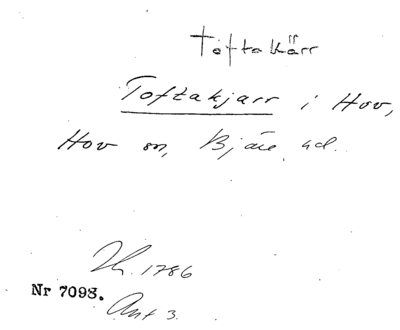 Toftakärr
Toftakjarr i Hov,
Hov sn, Bjäre hd.
1786
Nr 7098.
Akt 3.